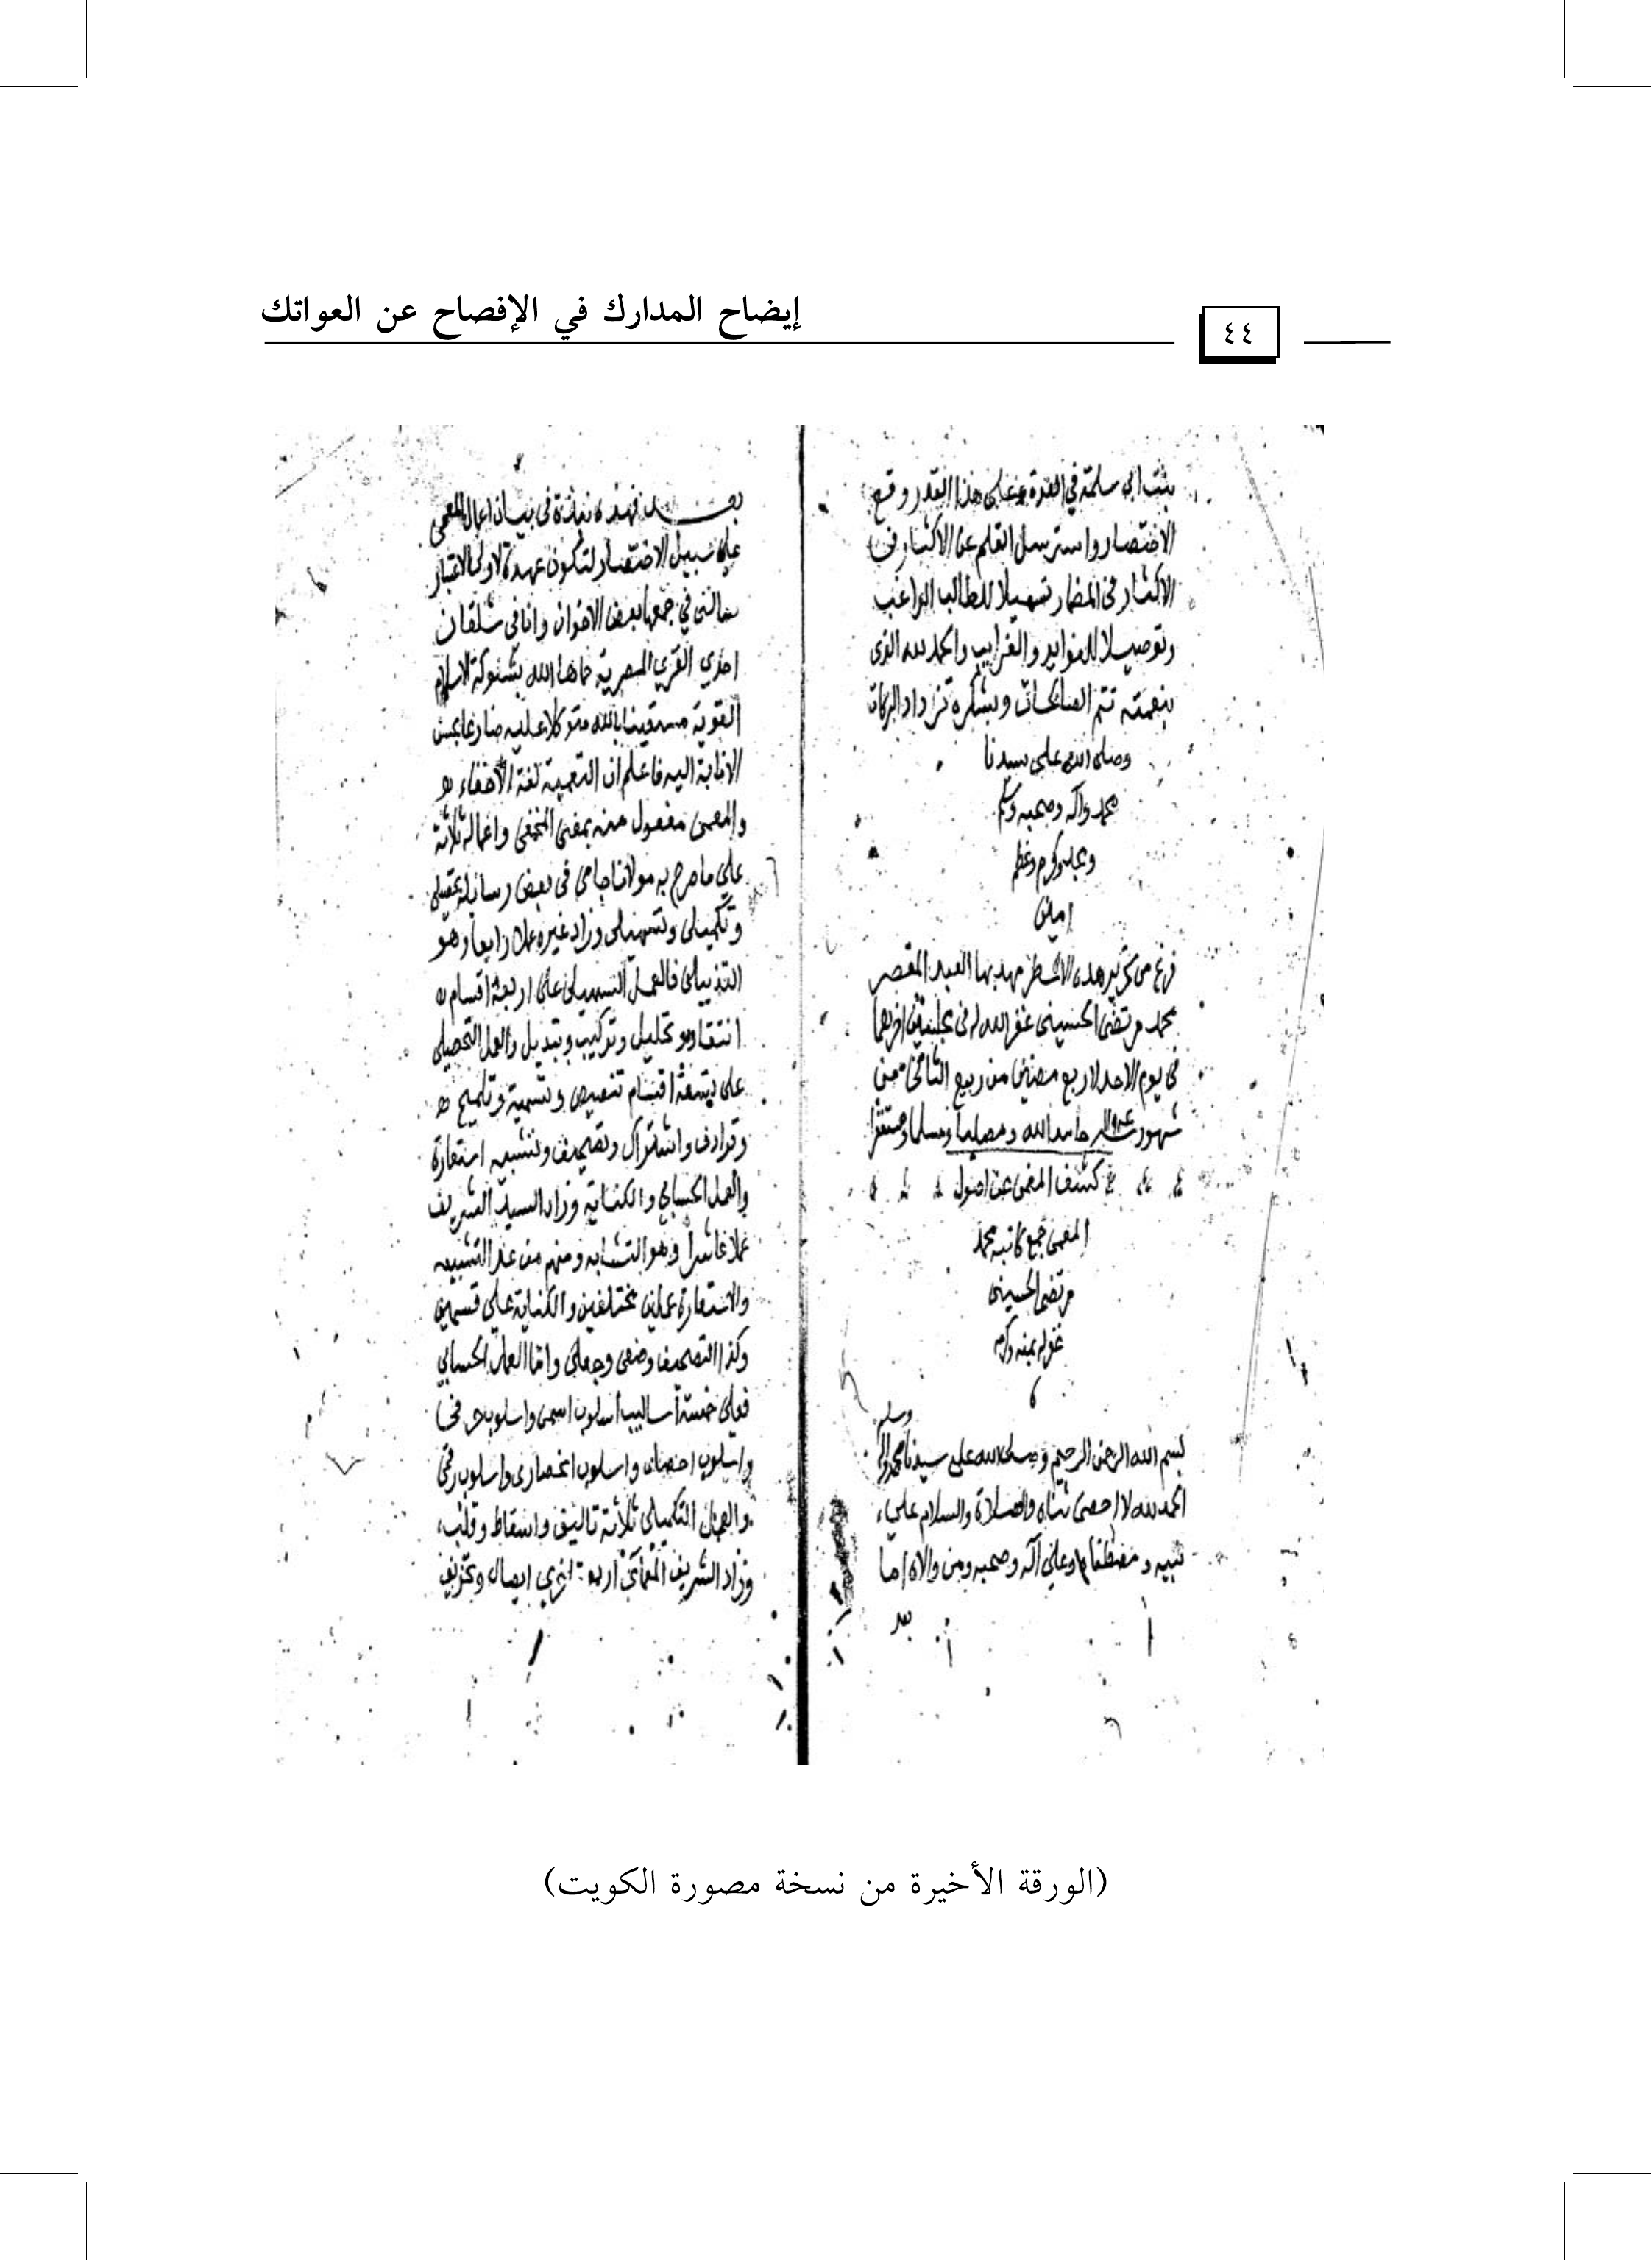 إيضاح المدارك في الإفصاح عن العواتك
٤٤
بنت ابي سلمة في العدة وعلى هذا القدر وقع
الاختصار واسترسل القلم عن الاكثار في
الاكثار في المضمار تسهيلا للطالب الراغب
وتوصيلا للفوايد والغرايب والحمد لله الذى
بنعمته تتم الصالحات وبشكره تزداد البركات
وصلى الله على سيدنا
محمد واله وصحبه وسلم
وكرم وعظم
امين
فرغ من تحرير هذه الاسطر مهديها العبد المقصر
محمد مرتضى الحسينى غفر الله له فى مجلسين اخرهما
فى يوم الاحد لاربع مضين من ربيع الثانى من
شهور حامدا لله ومصليا ومسلما ومستغفرا
كشف المغمى عن اصول
المعمى جمع كاتبه محمد
مرتضى الحسينى
غفر له بمنه وكرمه
وسلم
بسم الله الرحمن الرحيم وصلى الله على سيدنا محمد واله
الحمد لله لا احصى ثناه والصلاة والسلام على
نبيه ومصطفاه وعلى آله وصحبه ومن والاه اما
بعد
بعد فهذه نبذة فى بيان اعمال المعمى
على سبيل الاختصار لتكون عهدة لاولى الاعتبار
سالنى في جمعها بعض الاخوان وانا فى شلقان
احدي القري المصرية حماها الله بشوكة الاسلام
القوية مستعينا بالله متوكلا عليه ضارعا
الانابة اليه فاعلم ان التعمية لغة الاخفاء
والمعمى مفعول منه بمعنى المخفى واعماله ثلاثة
على ما صرح به مولانا جامى فى بعض رسايله تحصيلى
وتكميلى وتسهيلى وزاد غيره عملا رابعا وهو
التذييلى فالعمل التسهيلى على اربعة اقسام
انتقاد وتحليل وتركيب وتبديل والعمل التحصيلى
على تسعة اقسام تنصيص وتسمية وتلميح
وترادف واشتراك وتصحيف وتشبيه استعارة
والعمل الحسابي والكناية وزاد السيد الشريف
عملا عاشرا وهو التشابه ومنهم من عد التشبيه
والاستعارة عملين مختلفين والكناية على قسمين
وكذا التصحيف وضعى وجعلى واما العمل الحسابي
فعلى خمسة اساليب اسلوب اسمى واسلوب حرفى
واسلوب احصائى واسلوب انحصارى واسلوب رقمى
والعمل التكميلى ثلاثة تاليف واسقاط وقلب
وزاد الشريف المعمائى اربعة اخري ايصال
(الورقة الأخيرة من نسخة مصورة الكويت)